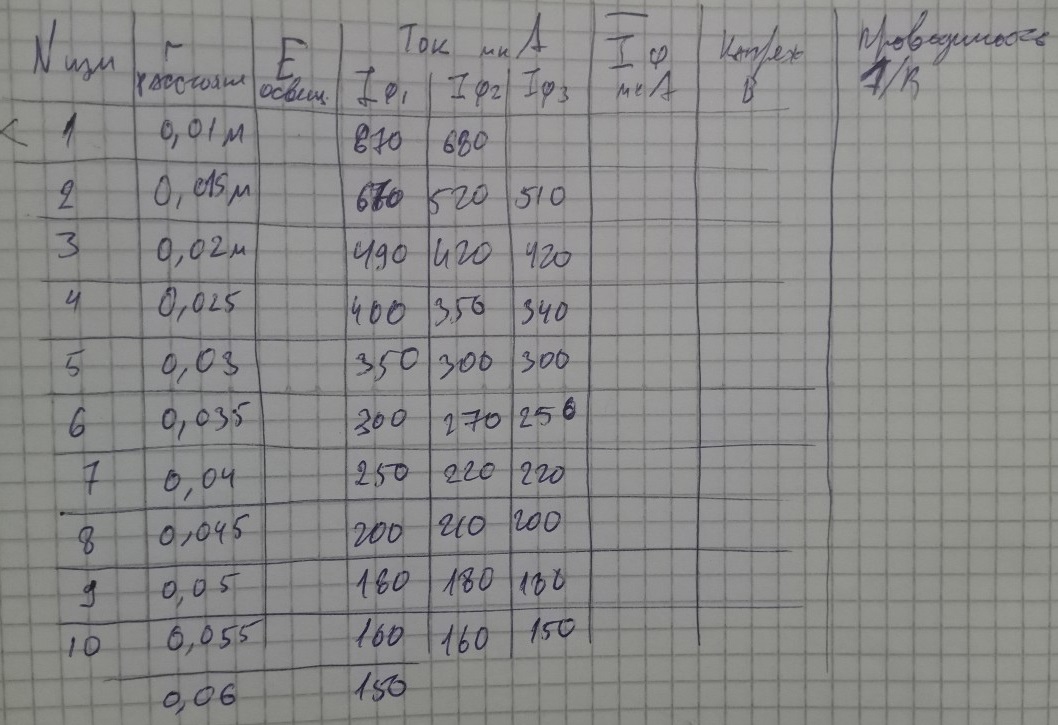 N изм r расстоян E освещ. Ток мкА Iф1 Iф2 Iф3 Iф мкА Напряж В Проводимость 1/R
1 0,01м 870 680
2 0,015м 520 510
3 0,02м 490 420 420
4 0,025 400 350 340
5 0,03 350 300 300
6 0,035 300 270 250
7 0,04 250 220 220
8 0,045 200 210 200
9 0,05 180 180 180
10 0,055 160 160 150
0,06 150